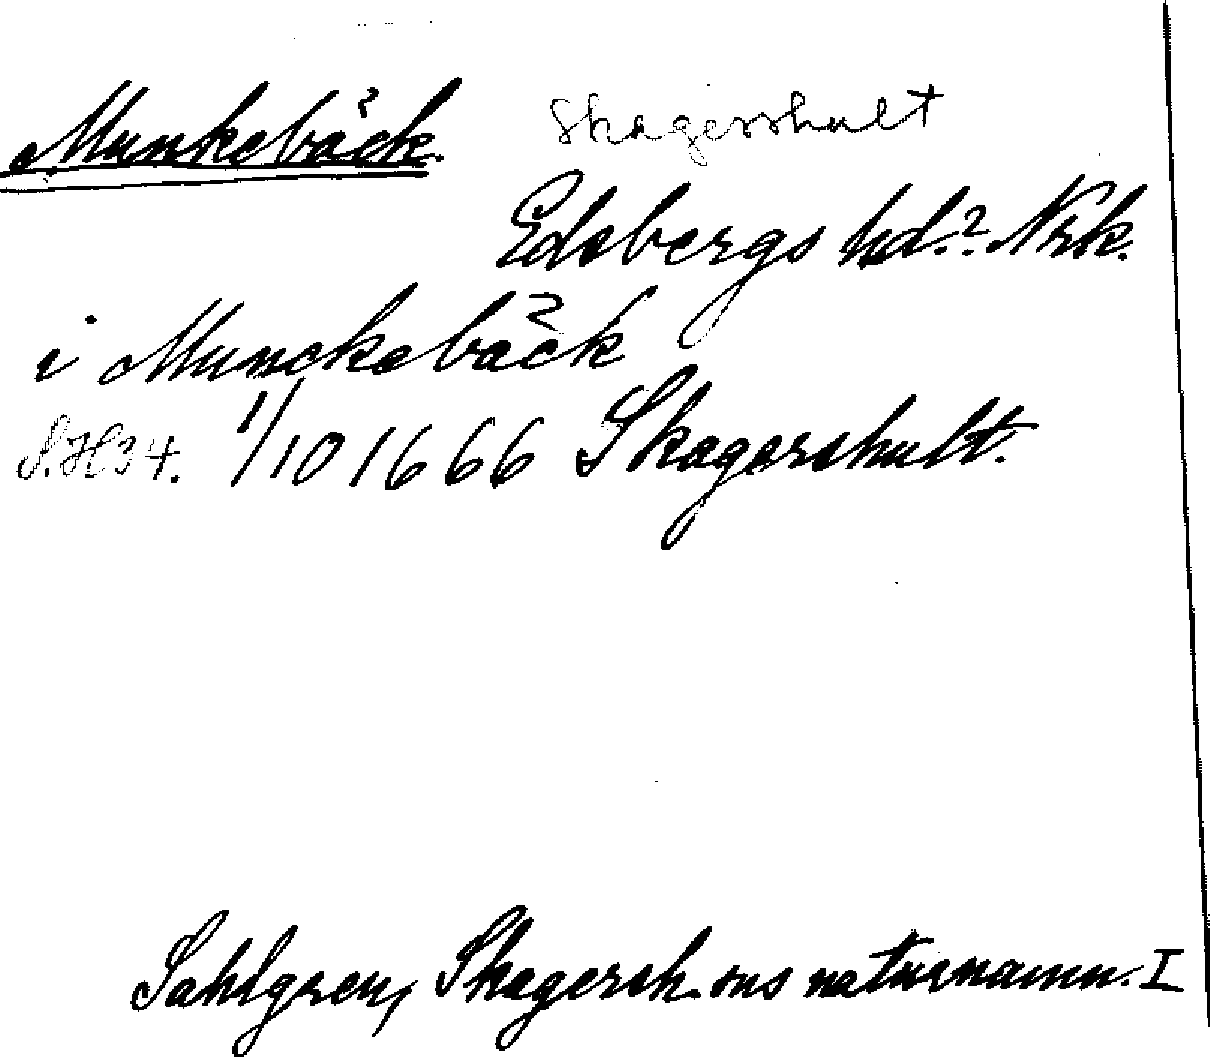 Munkebäck. Skagershult
Edsbergs hd.? Nrk.
i Munckebäck
S. H 34. 1/10 1666 Skagershult.
Sahlgren, Skagersh. sns naturnamn. I